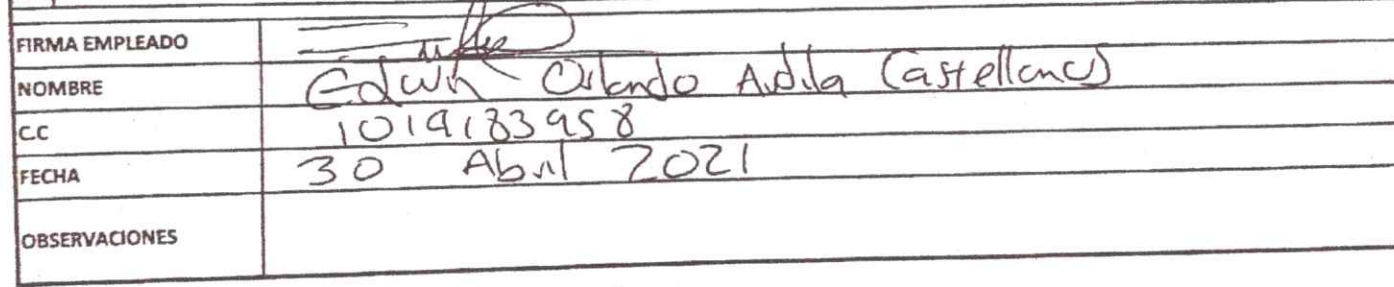 FIRMA EMPLEADO
NOMBRE Edwin Orlando Avila Castellanos
C.C 1019183958
FECHA 30 Abril 2021
OBSERVACIONES